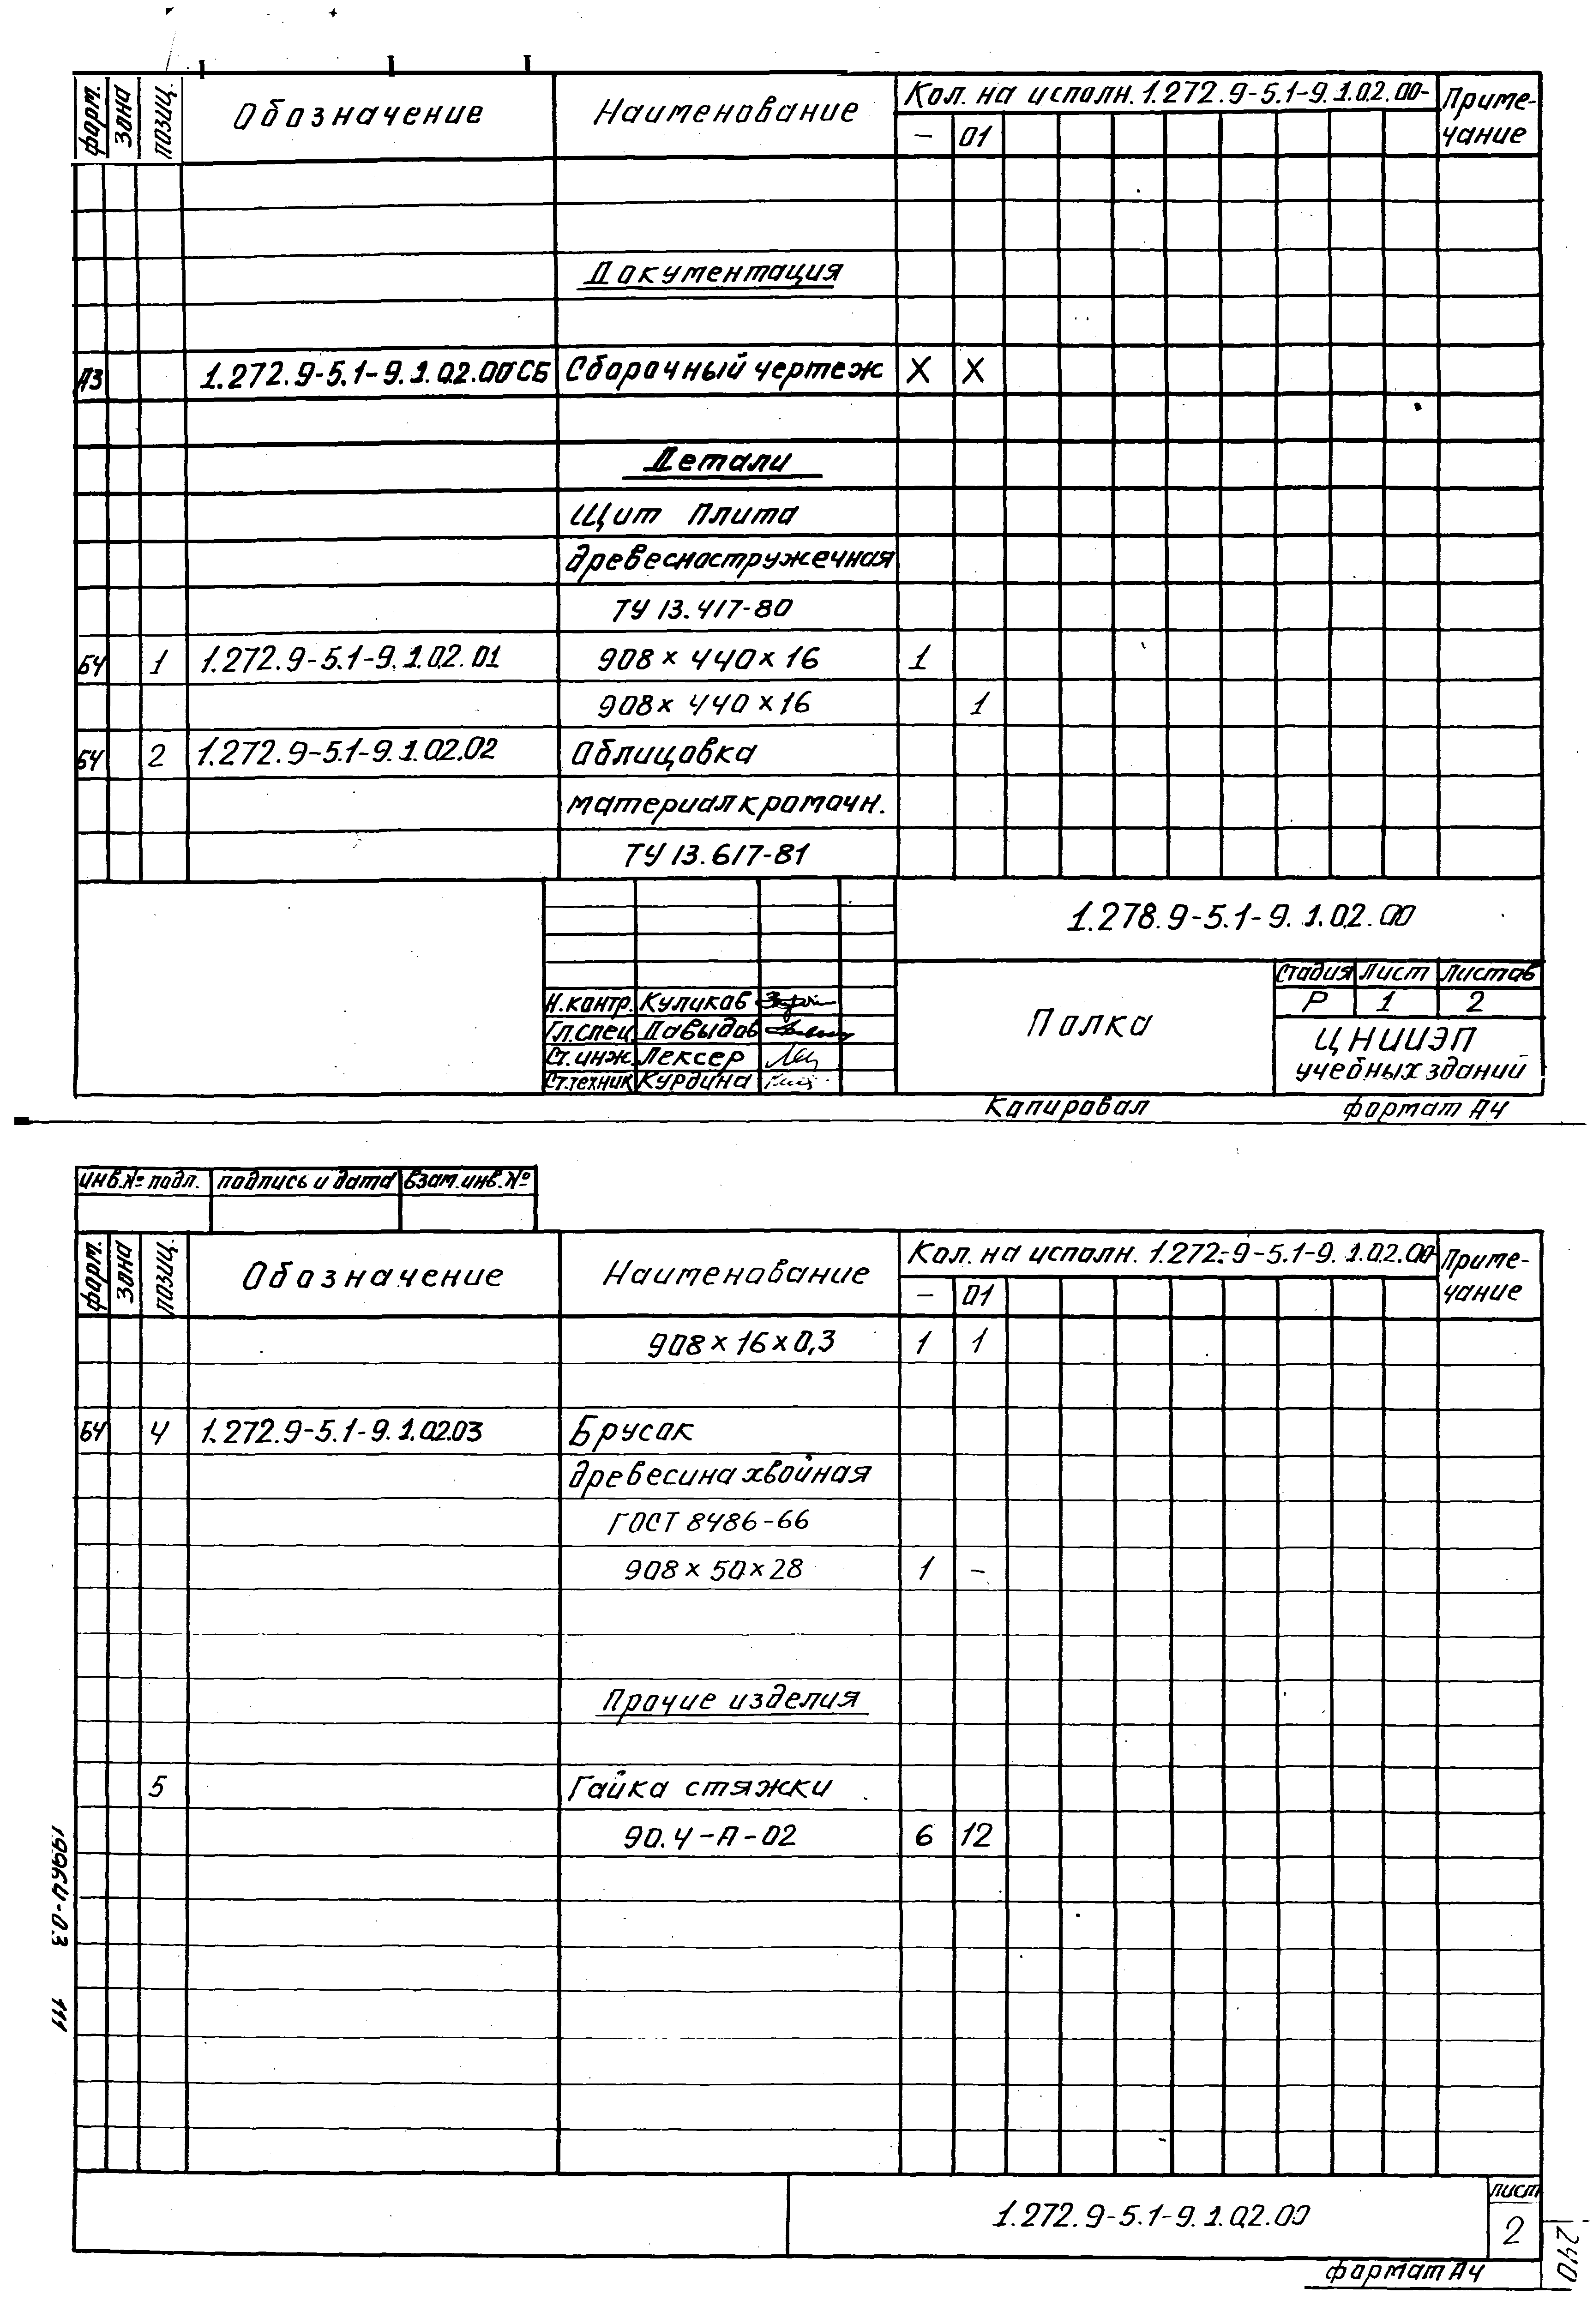 форм. зона позиц. Обозначение Наименование Кол. на исполн. 1.272.9-5.1-9.1.02.00- Приме-
— 01 чание
Документация
А3 1.272.9-5.1-9.1.02.00 СБ Сборочный чертеж Х Х
Детали
Щит Плита
древесностружечная
ТУ 13.417-80
БЧ 1 1.272.9-5.1-9.1.02.01 908 × 440 × 16 1
908 × 440 × 16 1
БЧ 2 1.272.9-5.1-9.1.02.02 Облицовка
материал кромочн.
ТУ 13.617-81
1.278.9-5.1-9.1.02.00
Стадия Лист Листов
Н.контр. Куликов Р 1 2
Гл.спец. Давыдов Полка
Ст.инж. Лексер ЦНИИЭП
Ст.техник Курдина учебных зданий
Копировал формат А4
инв.№ подл. подпись и дата взам.инв.№
форм. зона позиц. Обозначение Наименование Кол. на исполн. 1.272.9-5.1-9.1.02.00- Приме-
— 01 чание
908 × 16 × 0,3 1 1
БЧ 4 1.272.9-5.1-9.1.02.03 Брусок
древесина хвойная
ГОСТ 8486-66
908 × 50 × 28 1 –
Прочие изделия
5 Гайка стяжки
90.4-А-02 6 12
19964-03 111
1.272.9-5.1-9.1.02.00
лист
2
формат А4
240